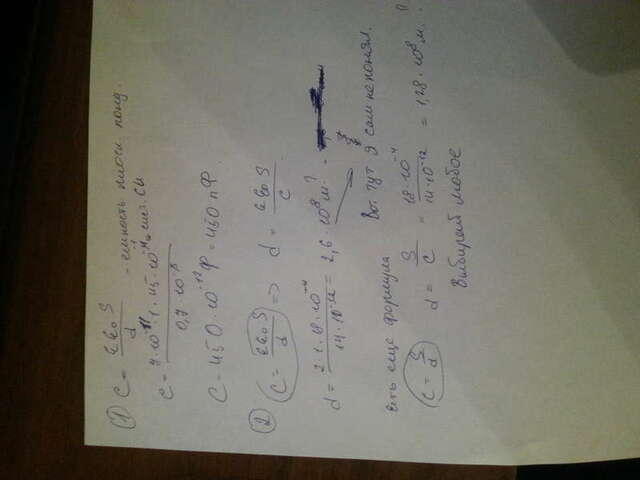 ① C = εε₀S / d - емкость плоск. конд.
C = 7·10⁻¹¹·1·45·10⁻⁴ СИ / 0,7·10
C = 450·10⁻¹² Ф = 450 пФ.
② C = εε₀S / d => d = εε₀S / C.
d = 2·1·18·10⁻⁴ / 14·10⁻¹² = 2,6·10⁸ м.?
Вот тут я сам не понял.
есть еще формула
C = S / d d = S / C = 18·10⁻⁴ / 14·10⁻¹² = 1,28·10⁸ м. ?
Выбирай любое